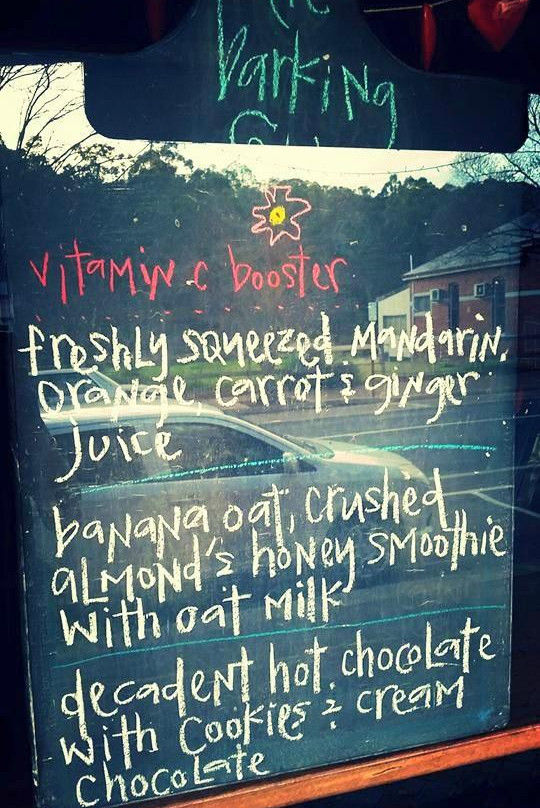 the
barking
vitamin c booster
freshly squeezed mandarin,
orange, carrot & ginger
juice
banana oat, crushed
almond's honey smoothie
with oat milk
decadent hot chocolate
with cookies & cream
chocolate